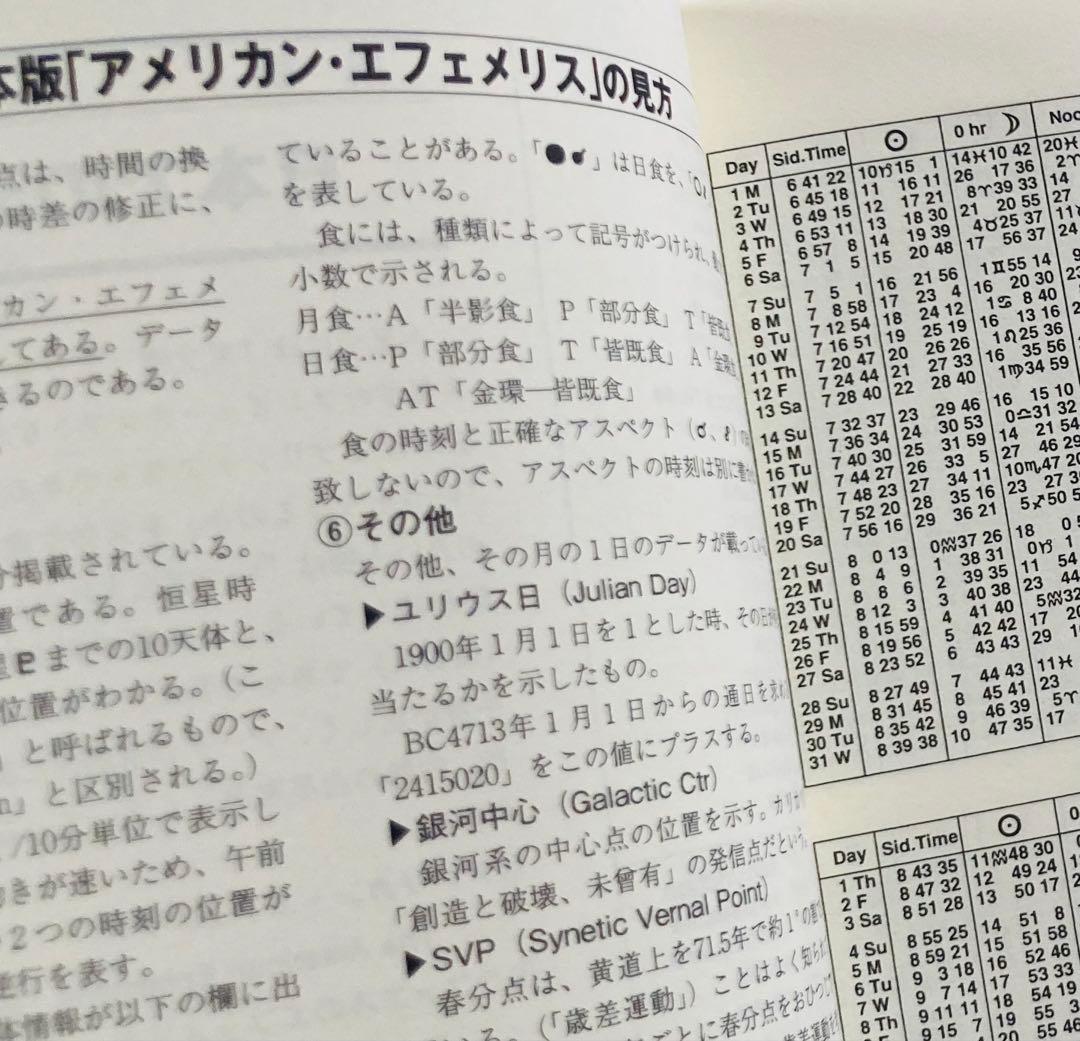 本版「アメリカン・エフェメリス」の見方
点は、時間の換
の時差の修正に、
カン・エフェメ
してある。データ
きるのである。
掲載されている。
置である。恒星時
星♇までの10天体と、
位置がわかる。（こ
」と呼ばれるもので、
n」と区別される。）
1/10分単位で表示し
動きが速いため、午前
2つの時刻の位置が
逆行を表す。
体情報が以下の欄に出
ていることがある。「●☌」は日食を、
を表している。
食には、種類によって記号がつけられ、
小数で示される。
月食…A「半影食」 P「部分食」 T「皆既食
日食…P「部分食」 T「皆既食」 A「金環
AT「金環―皆既食」
食の時刻と正確なアスペクト（☌、☍）
致しないので、アスペクトの時刻は別に
⑥その他
その他、その月の1日のデータが載って
▶ユリウス日（Julian Day）
1900年1月1日を1とした時、その日が
当たるかを示したもの。
BC4713年1月1日からの通日を求め
「2415020」をこの値にプラスする。
▶銀河中心（Galactic Ctr）
銀河系の中心点の位置を示す。
「創造と破壊、未曾有」の発信点だという。
▶SVP（Synetic Vernal Point）
春分点は、黄道上を71.5年で約1°の
いる。（「歳差運動」）ことはよく知られ
ごとに春分点をおひつじ
Day Sid.Time ☉ 0 hr ☽ Noo
1 M 6 41 22 10♑15 1 14♓10 42 20♓
2 Tu 6 45 18 11 16 11 26 17 36 2♈
3 W 6 49 15 12 17 21 8♈39 33 14
4 Th 6 53 11 13 18 30 21 20 55 27
5 F 6 57 8 14 19 39 4♉25 37 11♉
6 Sa 7 1 5 15 20 48 17 56 37 24
7 Su 7 5 1 16 21 56 1♊55 14 9
8 M 7 8 58 17 23 4 16 20 30 23
9 Tu 7 12 54 18 24 12 1♋ 8 40
10 W 7 16 51 19 25 19 16 13 16
11 Th 7 20 47 20 26 26 1♌25 36
12 F 7 24 44 21 27 33 16 35 56
13 Sa 7 28 40 22 28 40 1♍34 59
14 Su 7 32 37 23 29 46 16 15 10
15 M 7 36 34 24 30 53 0♎31 32
16 Tu 7 40 30 25 31 59 14 21 54
17 W 7 44 27 26 33 5 27 46 29
18 Th 7 48 23 27 34 11 10♏47 20
19 F 7 52 20 28 35 16 23 27 39
20 Sa 7 56 16 29 36 21 5♐50 5
21 Su 8 0 13 0♒37 26 18 0 5
22 M 8 4 9 1 38 31 0♑ 1
23 Tu 8 8 6 2 39 35 11 54
24 W 8 12 3 3 40 38 23 44
25 Th 8 15 59 4 41 40 5♒32
26 F 8 19 56 5 42 42 17 20
27 Sa 8 23 52 6 43 43 29 10
28 Su 8 27 49 7 44 43 11♓
29 M 8 31 45 8 45 41 23
30 Tu 8 35 42 9 46 39 5♈
31 W 8 39 38 10 47 35 17
Day Sid.Time ☉ 0
1 Th 8 43 35 11♒48 30
2 F 8 47 32 12 49 24
3 Sa 8 51 28 13 50 17
4 Su 8 55 25 14 51 8
5 M 8 59 21 15 51 58
6 Tu 9 3 18 16 52 46
7 W 9 7 14 17 53 33
8 Th 9 11 11 18 54 19
9 15 7 19 55 3
20 55 46